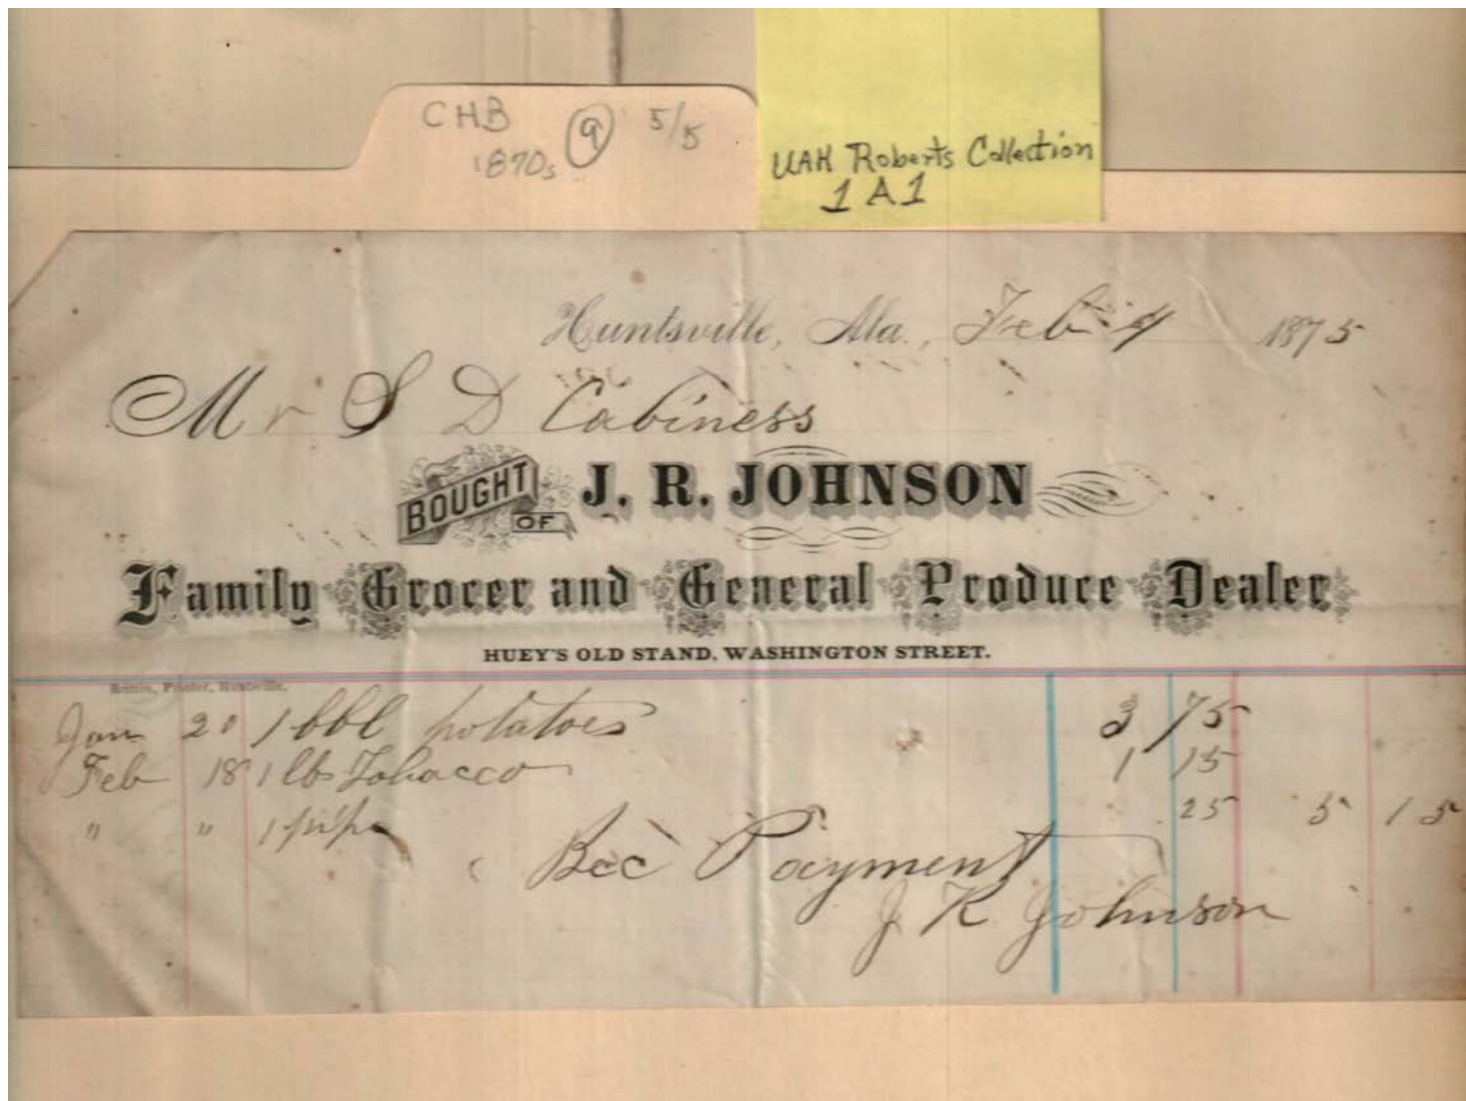 CHB 9 5/5
1870s
UAH Roberts Collection
1A1
Huntsville, Ala., Feb 4 1875
Mr S D Cabiness
BOUGHT OF J. R. JOHNSON
Family Grocer and General Produce Dealer
HUEY'S OLD STAND, WASHINGTON STREET.
Printer, Huntsville.
Jan 20 1 bbl potatoes 3 75
Feb 18 1 lb Tobacco 1 15
" " 1 pipe 25 5 15
Rec Payment
J R Johnson